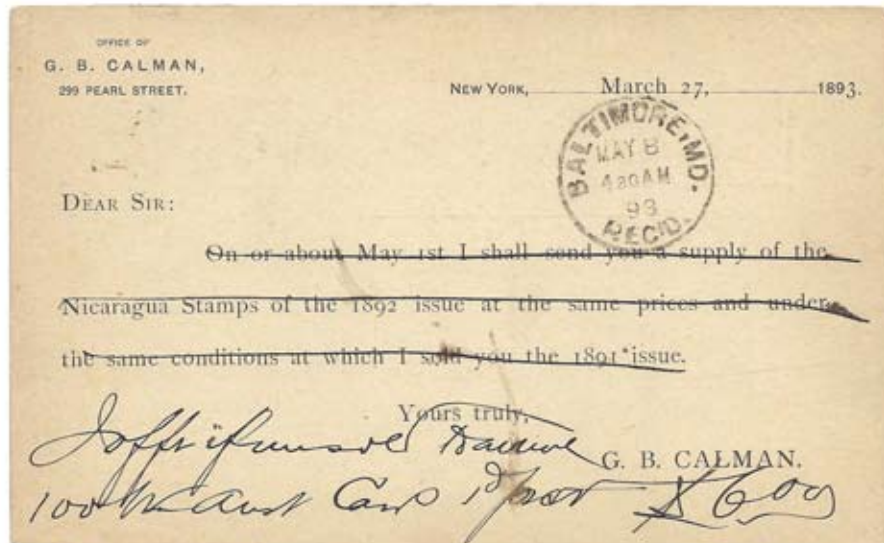 OFFICE OF
G. B. CALMAN,
299 PEARL STREET.
NEW YORK, March 27, 1893.
BALTIMORE, MD.
MAY 8
430AM
93
REC'D.
DEAR SIR:
On or about May 1st I shall send you a supply of the
Nicaragua Stamps of the 1892 issue at the same prices and under
the same conditions at which I sold you the 1891 issue.
Yours truly,
G. B. CALMAN.
I offr if unsold
100